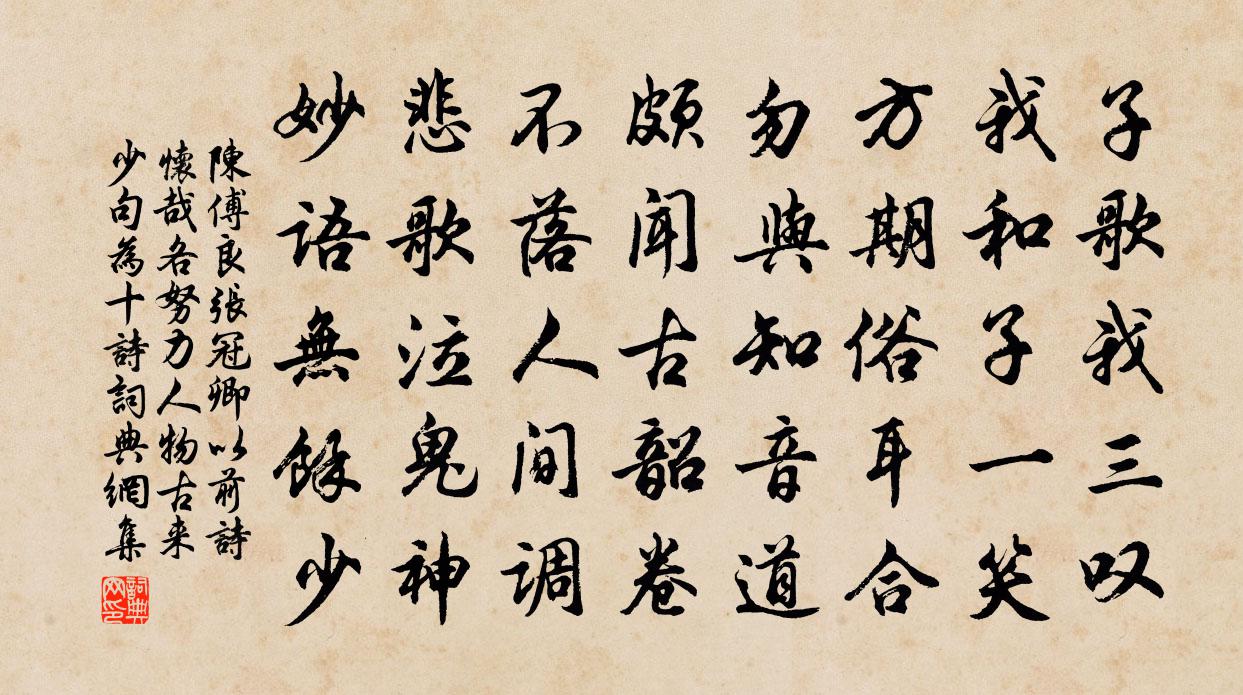 子歌我三叹
我和子一笑
方期俗耳合
勿與知音道
頗闻古韶卷
不落人间调
悲歌泣鬼神
妙语無餘少
陳傅良張冠卿以前詩
懷哉各努力人物古来
少句為十詩詞典網集
詞典
网印